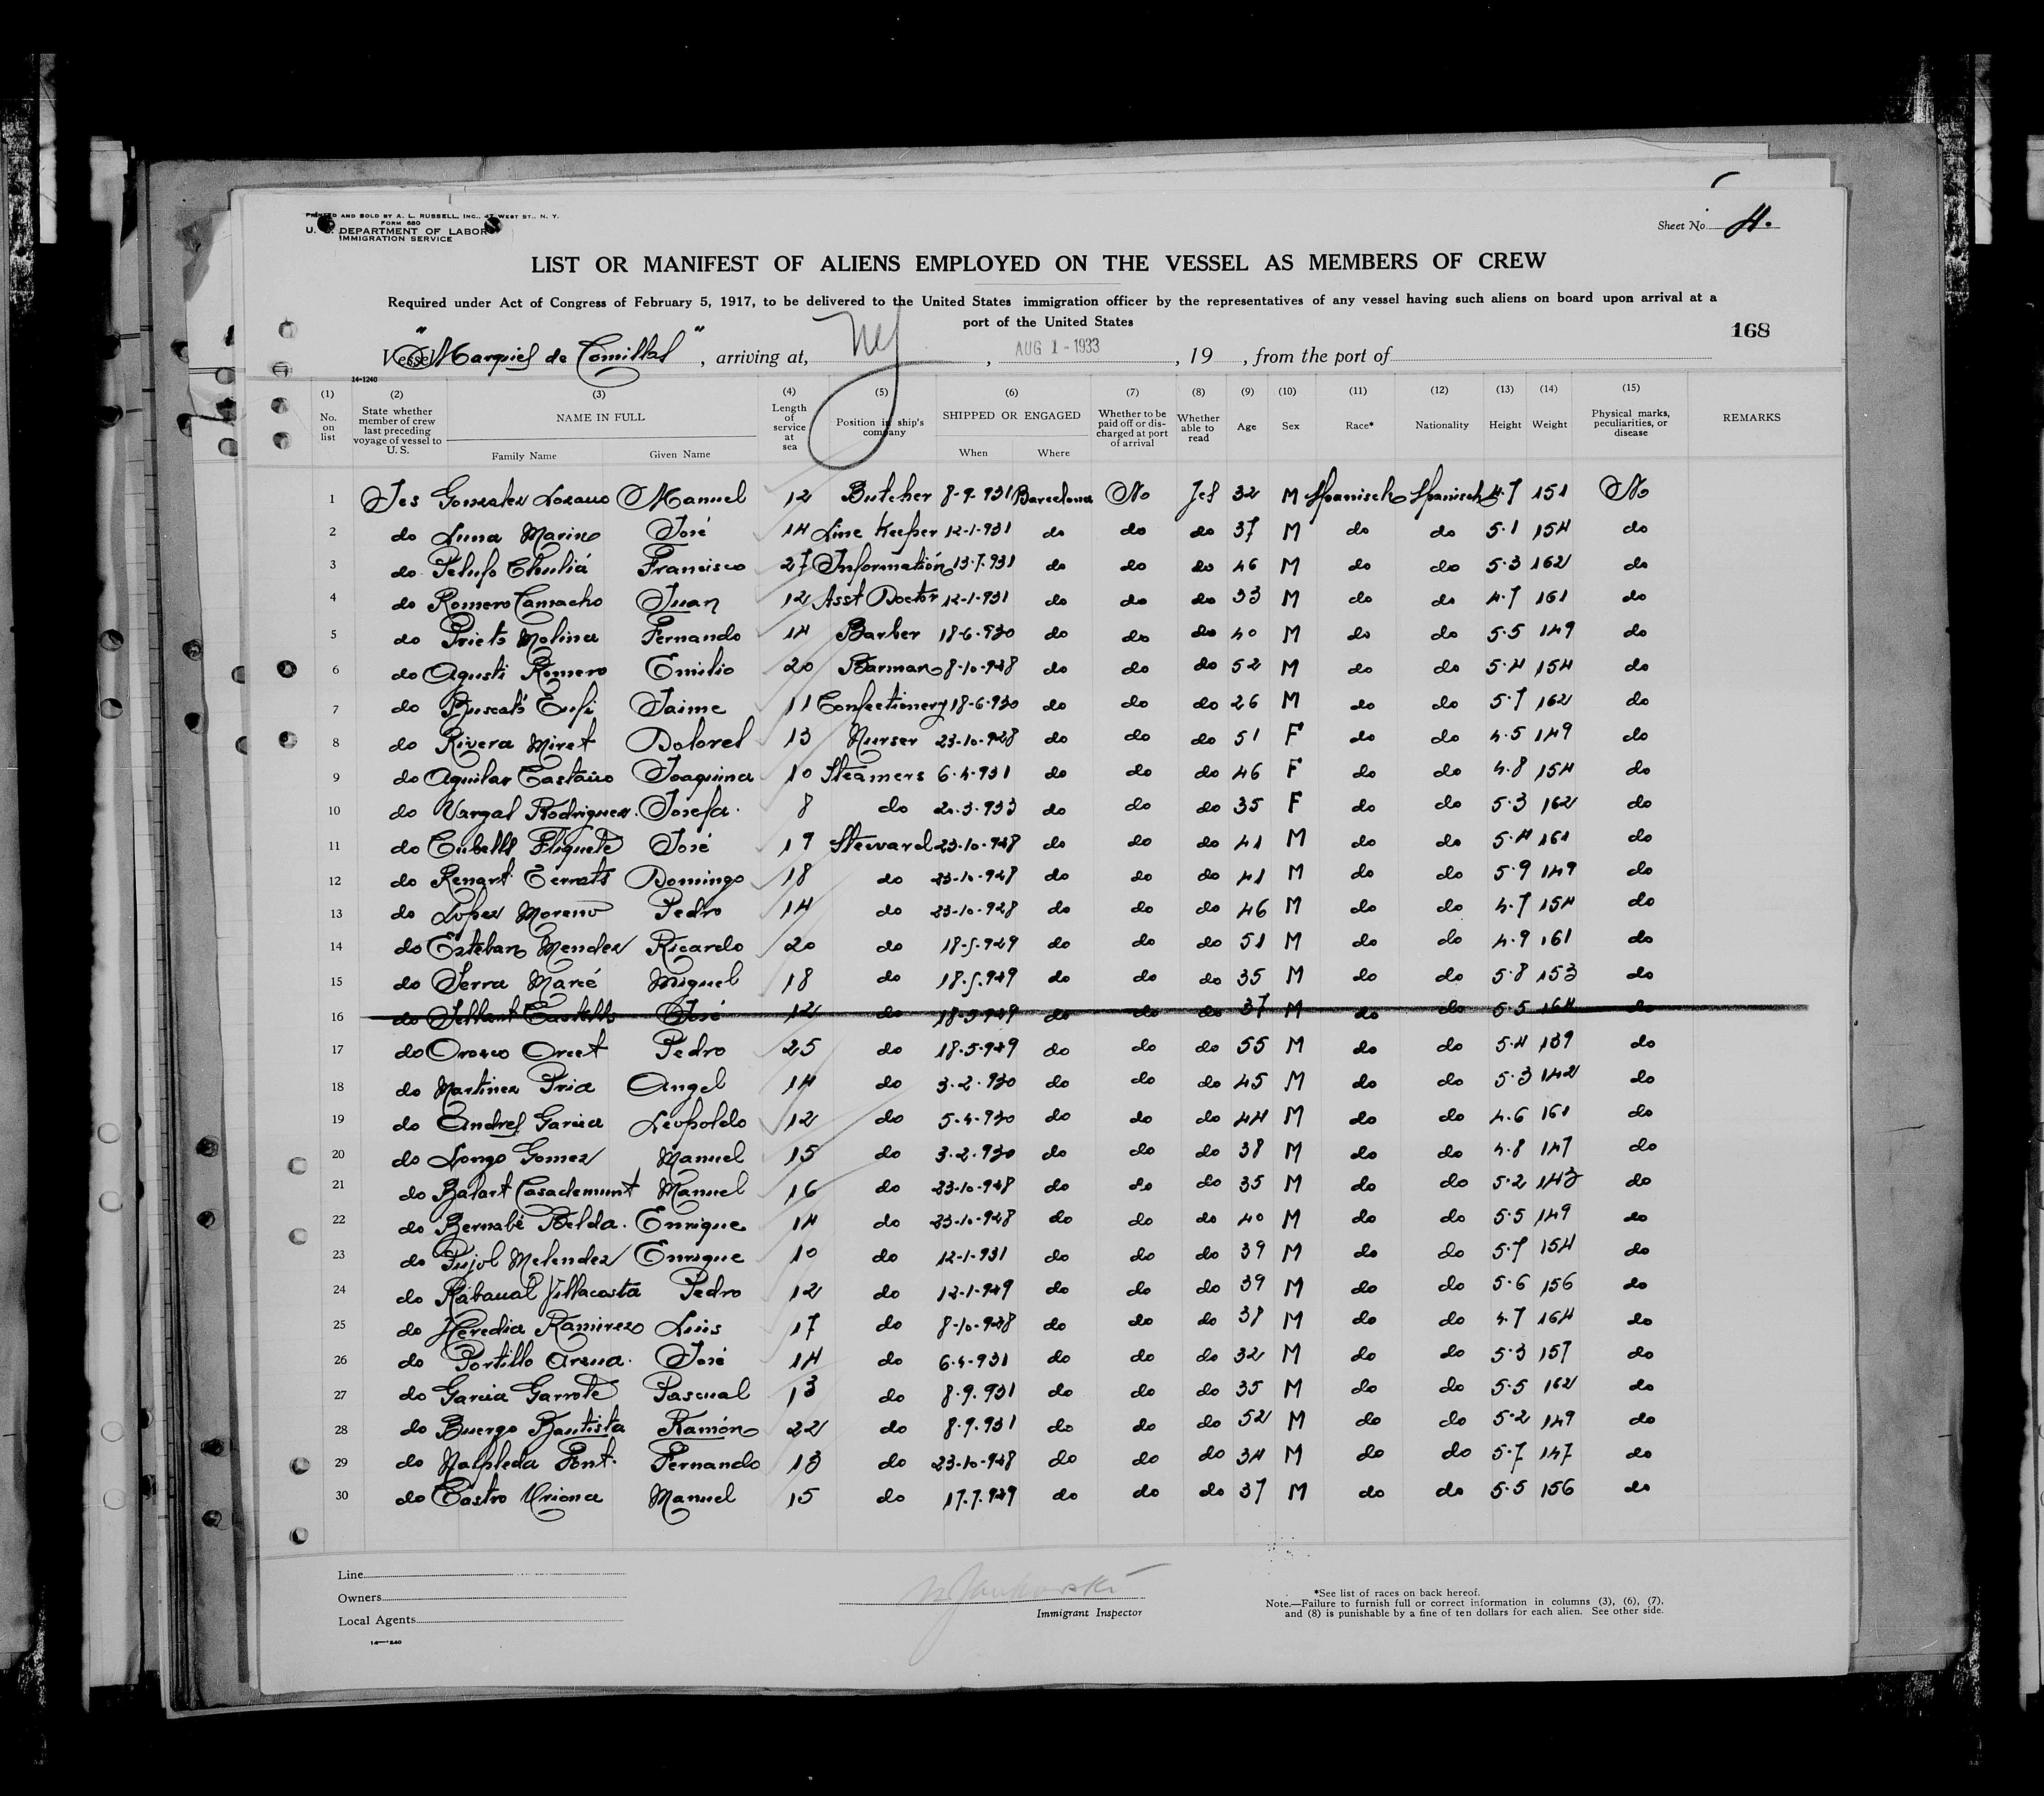 PRINTED AND SOLD BY A. L. RUSSELL, INC., 47 WEST ST., N. Y.
FORM 680
U. S. DEPARTMENT OF LABOR
IMMIGRATION SERVICE
Sheet No. 4.
LIST OR MANIFEST OF ALIENS EMPLOYED ON THE VESSEL AS MEMBERS OF CREW
Required under Act of Congress of February 5, 1917, to be delivered to the United States immigration officer by the representatives of any vessel having such aliens on board upon arrival at a
port of the United States
168
Vessel "Marques de Comillas", arriving at, NY, AUG 1 - 1933, 19 , from the port of
14-1240
(1) No. on list (2) State whether member of crew last preceding voyage of vessel to U. S. (3) NAME IN FULL Family Name Given Name (4) Length of service at sea (5) Position in ship's company (6) SHIPPED OR ENGAGED When Where (7) Whether to be paid off or discharged at port of arrival (8) Whether able to read (9) Age (10) Sex (11) Race* (12) Nationality (13) Height (14) Weight (15) Physical marks, peculiarities, or disease REMARKS
1 Yes Gonzalez Lozano Manuel 12 Butcher 8-9-931 Barcelona No Yes 32 M Spanisch Spanisch 4.7 151 No
2 do Luna Marin José 14 Line Keeper 12-1-931 do do do 37 M do do 5.1 154 do
3 do Pelufo Chuliá Francisco 27 Informatión 13.7.931 do do do 46 M do do 5.3 162 do
4 do Romero Camacho Juan 12 Asst Doctor 12-1-931 do do do 33 M do do 4.7 161 do
5 do Prieto Molina Fernando 14 Barber 18-6-930 do do do 40 M do do 5.5 149 do
6 do Agusti Romero Emilio 20 Barman 8-10-928 do do do 52 M do do 5.4 154 do
7 do Jaime 11 Confectionery 18-6-930 do do do 26 M do do 5.7 162 do
8 do Rivera Miret Dolores 13 Nurser 23-10-928 do do do 51 F do do 4.5 149 do
9 do Aguilar Castaño Joaquina 10 Steamers 6.4.931 do do do 46 F do do 4.8 154 do
10 do Vargas Rodriguez Josefa 8 do 20.3.933 do do do 35 F do do 5.3 162 do
11 do Cubells José 19 Steward 23-10-928 do do do 41 M do do 5.4 161 do
12 do Renart Domingo 18 do 23-10-928 do do do 41 M do do 5.9 149 do
13 do Lopez Moreno Pedro 14 do 23-10-928 do do do 46 M do do 4.7 154 do
14 do Esteban Mendez Ricardo 20 do 18-5-929 do do do 51 M do do 4.9 161 do
15 do Serra Maré Miguel 18 do 18.5.929 do do do 35 M do do 5.8 153 do
16 do Castells José 12 do 18-5-929 do do do 37 M do do 5.5 164 do
17 do Orozco Orcet Pedro 25 do 18.5.929 do do do 55 M do do 5.4 139 do
18 do Martinez Pria Angel 14 do 3.2.930 do do do 45 M do do 5.3 142 do
19 do Andres Garcia Leopoldo 12 do 5.4.930 do do do 44 M do do 4.6 161 do
20 do Longo Gomez Manuel 15 do 3.2.930 do do do 38 M do do 4.8 147 do
21 do Balart Casademunt Manuel 16 do 23-10-928 do do do 35 M do do 5.2 143 do
22 do Bernabé Belda Enrique 14 do 23-10-928 do do do 40 M do do 5.5 149 do
23 do Pujol Melendez Enrique 10 do 12-1-931 do do do 39 M do do 5.7 154 do
24 do Rabanal Villacosta Pedro 12 do 12-1-929 do do do 39 M do do 5.6 156 do
25 do Heredia Ramirez Luis 17 do 8-10-928 do do do 38 M do do 4.7 164 do
26 do Portillo Arena José 14 do 6.4.931 do do do 32 M do do 5.3 157 do
27 do Garcia Garrote Pascual 13 do 8.9.931 do do do 35 M do do 5.5 162 do
28 do Buergo Bautista Ramón 22 do 8.9.931 do do do 52 M do do 5.2 149 do
29 do Malpleda Pont Fernando 13 do 23-10-928 do do do 34 M do do 5.7 147 do
30 do Castro Uriona Manuel 15 do 17.7.929 do do do 37 M do do 5.5 156 do
Line
Owners
Local Agents
14-1240
Immigrant Inspector
*See list of races on back hereof.
Note.—Failure to furnish full or correct information in columns (3), (6), (7),
and (8) is punishable by a fine of ten dollars for each alien. See other side.